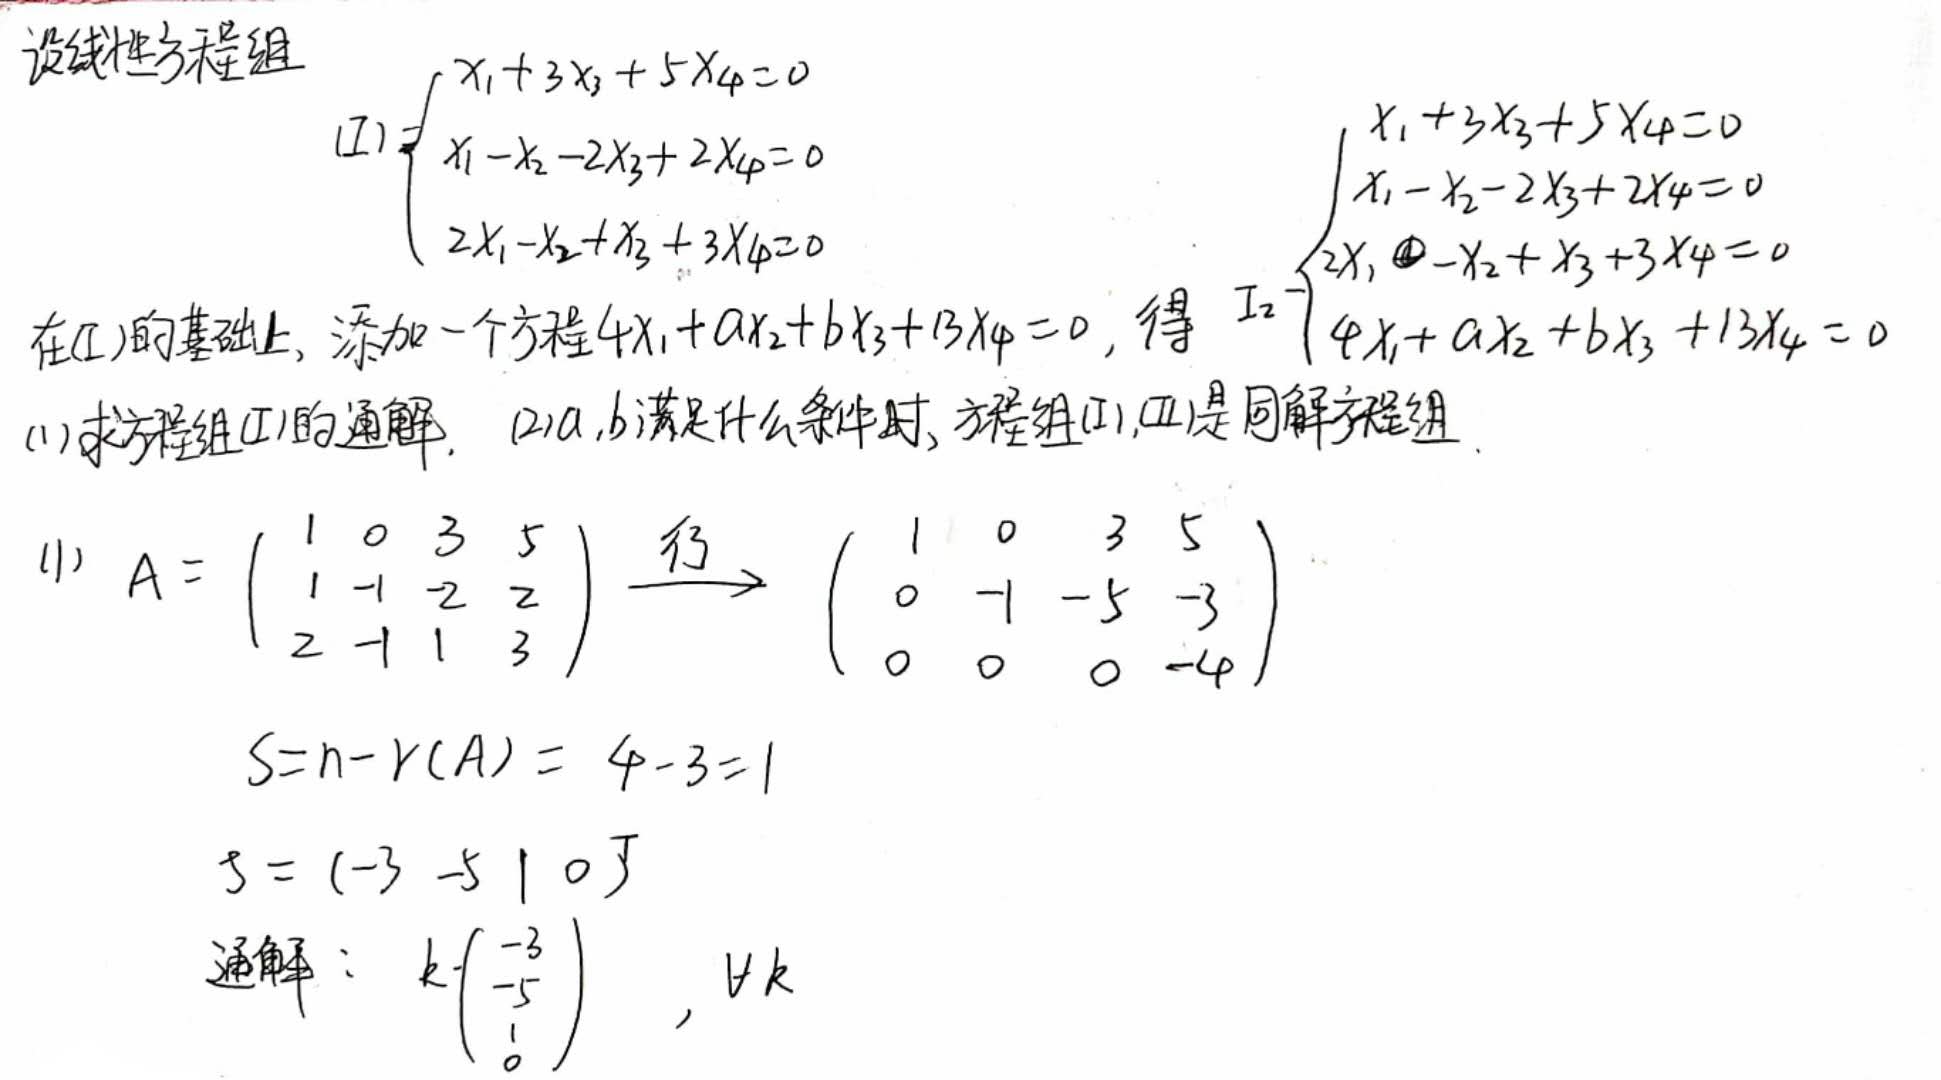 设线性方程组
(I) = { x₁+3x₃+5x₄=0
x₁-x₂-2x₃+2x₄=0
2x₁-x₂+x₃+3x₄=0
在(I)的基础上、添加一个方程4x₁+ax₂+bx₃+13x₄=0, 得 I₂ { x₁+3x₃+5x₄=0
x₁-x₂-2x₃+2x₄=0
2x₁-x₂+x₃+3x₄=0
4x₁+ax₂+bx₃+13x₄=0
(1)求方程组(I)的通解. (2)a,b满足什么条件时、方程组(I),(II)是同解方程组.
(1) A = ( 1 0 3 5 —行→ ( 1 0 3 5
1 -1 -2 2 0 -1 -5 -3
2 -1 1 3 ) 0 0 0 -4 )
S=n-r(A) = 4-3=1
ξ = (-3 -5 1 0)ᵀ
通解: k·( -3
-5
1
0 ) , ∀k